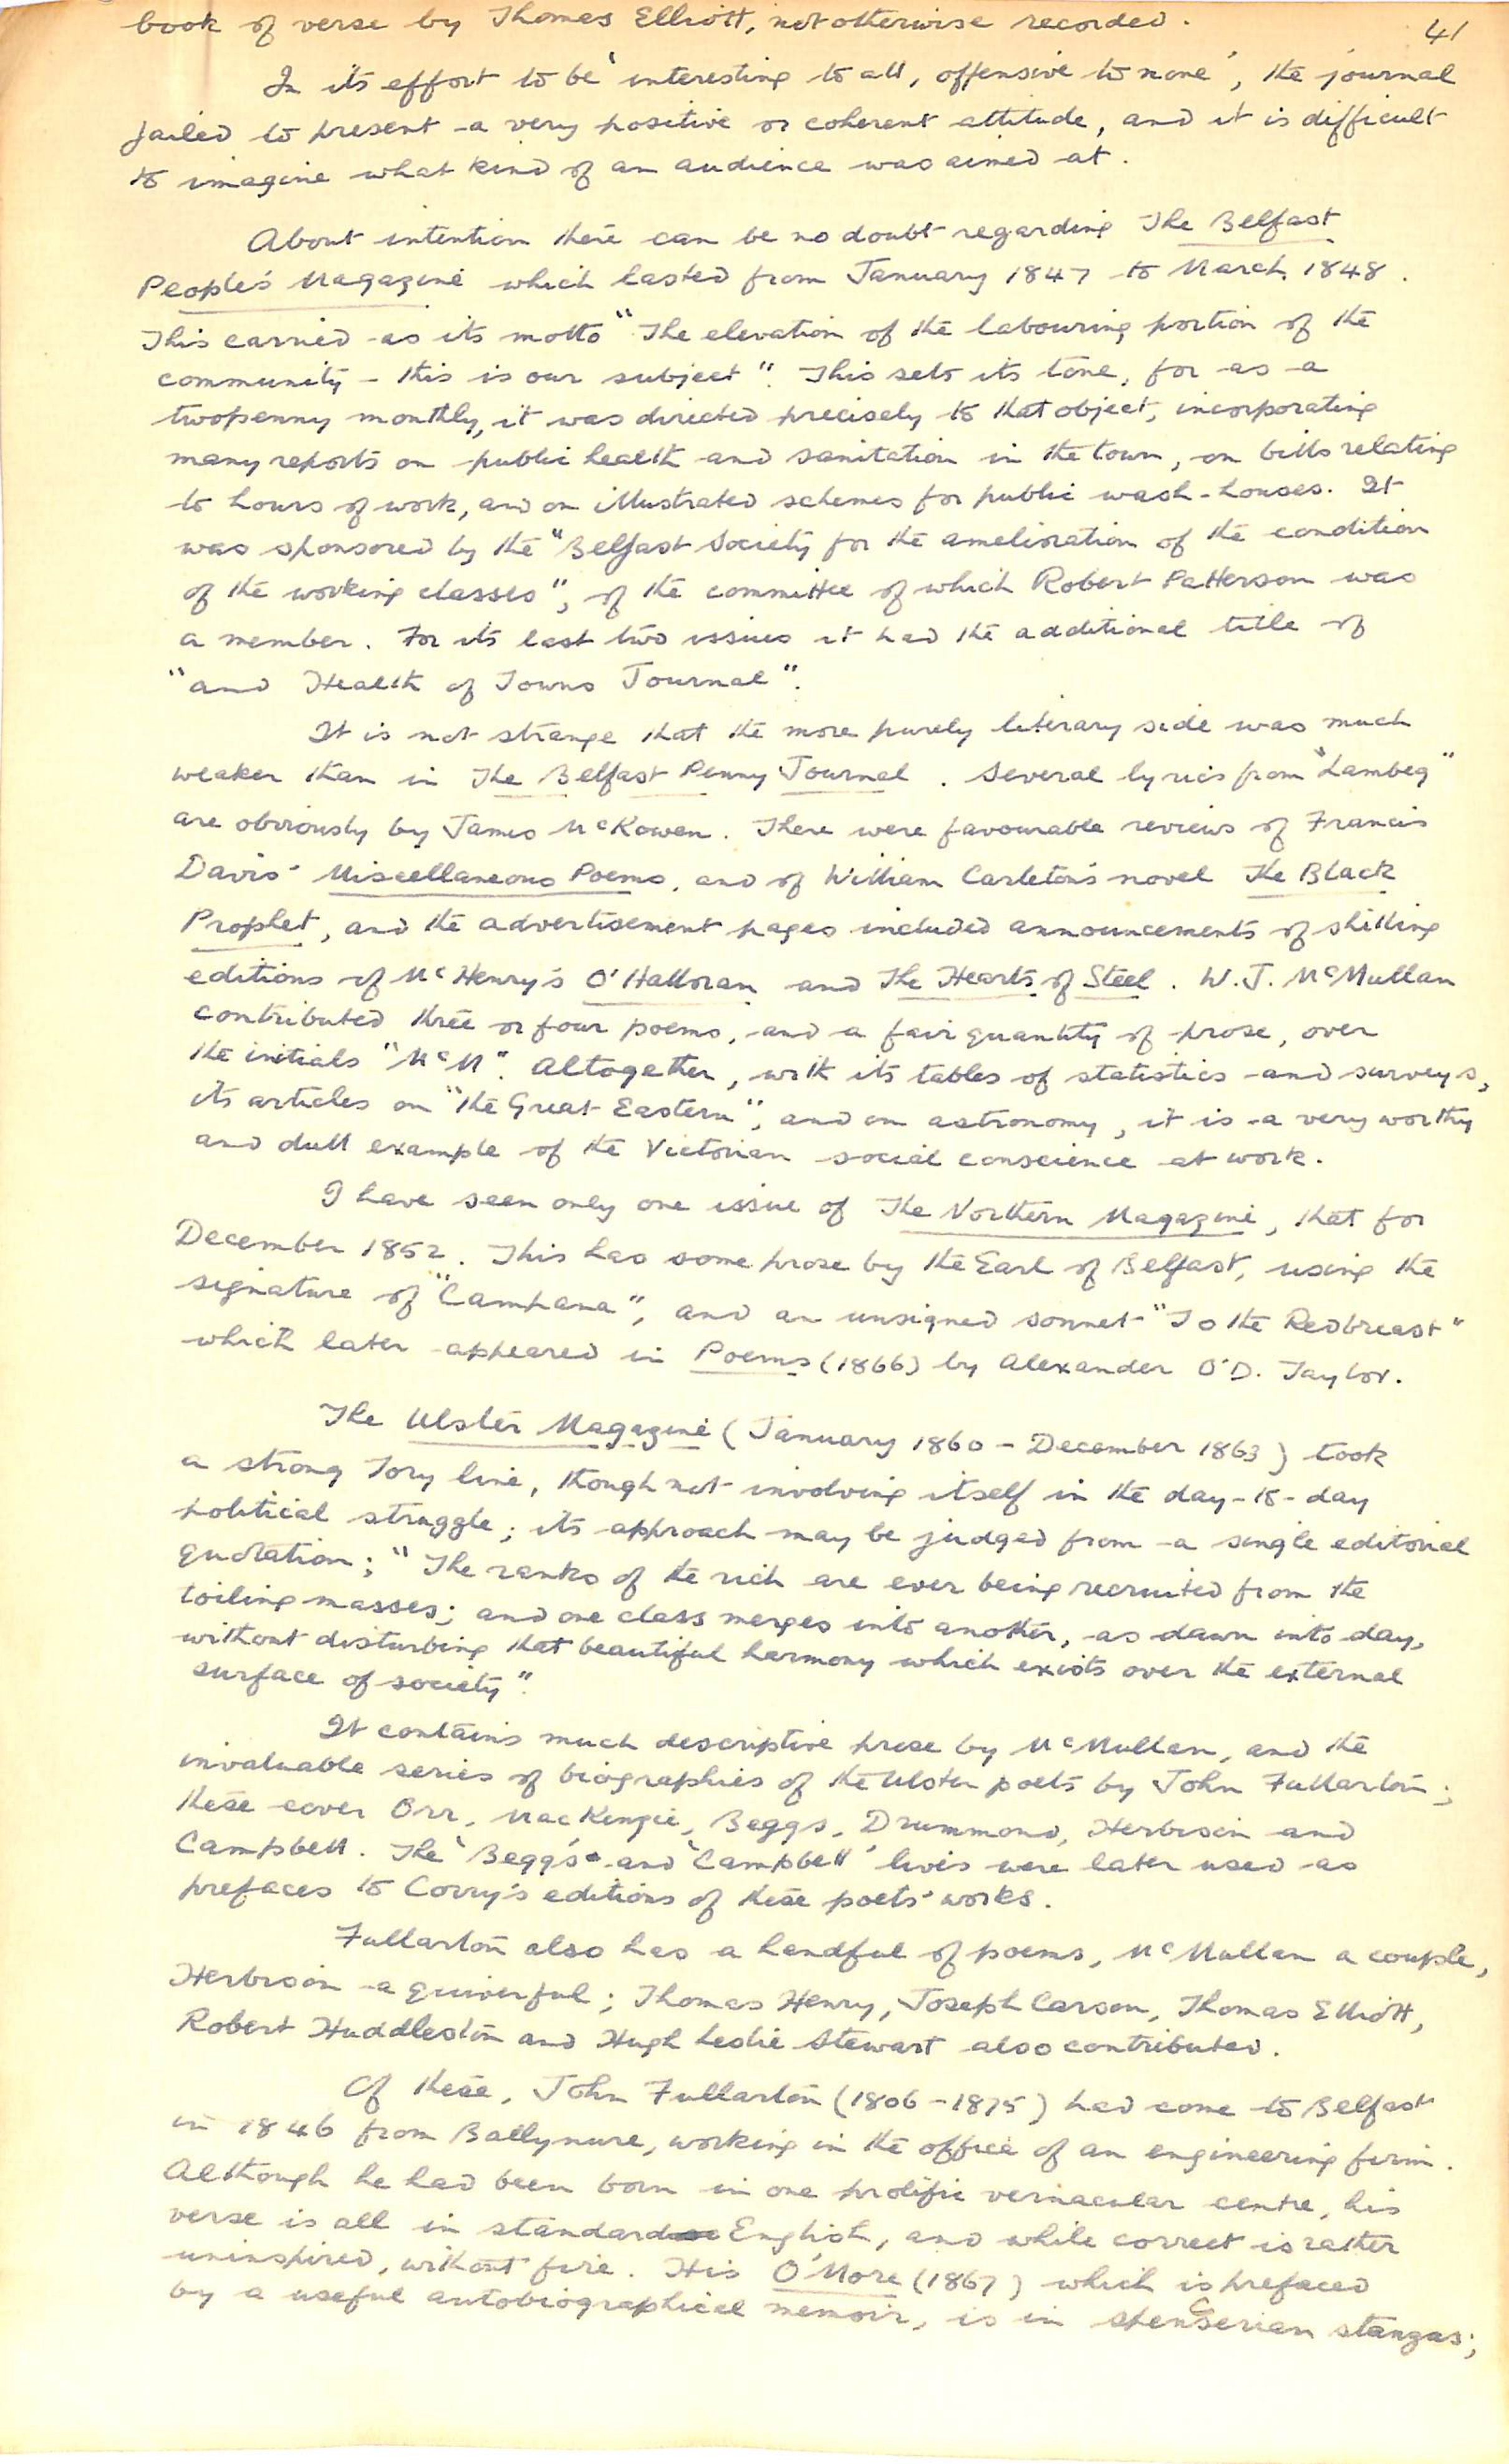 book of verse by Thomas Elliott, not otherwise recorded.
41
In its effort to be 'interesting to all, offensive to none', the journal
failed to present a very positive or coherent attitude, and it is difficult
to imagine what kind of an audience was aimed at.
About intention there can be no doubt regarding The Belfast
People's Magazine which lasted from January 1847 to March 1848.
This carried as its motto "The elevation of the labouring portion of the
community - this is our subject". This sets its tone, for as a
twopenny monthly, it was directed precisely to that object, incorporating
many reports on public health and sanitation in the town, on bills relating
to hours of work, and on illustrated schemes for public wash-houses. It
was sponsored by the "Belfast Society for the amelioration of the condition
of the working classes", of the committee of which Robert Patterson was
a member. For its last two issues it had the additional title of
"and Health of Towns Journal".
It is not strange that the more purely literary side was much
weaker than in The Belfast Penny Journal. Several lyrics from "Lambeg"
are obviously by James McKowen. There were favourable reviews of Francis
Davis' Miscellaneous Poems, and of William Carleton's novel The Black
Prophet, and the advertisement pages included announcements of shilling
editions of McHenry's O'Halloran and The Hearts of Steel. W.J. McMullan
contributed three or four poems, and a fair quantity of prose, over
the initials "McM". Altogether, with its tables of statistics and surveys,
its articles on "the Great Eastern", and on astronomy, it is a very worthy
and dull example of the Victorian social conscience at work.
I have seen only one issue of The Northern Magazine, that for
December 1852. This has some prose by the Earl of Belfast, using the
signature of "Campana", and an unsigned sonnet "To the Redbreast"
which later appeared in Poems (1866) by Alexander O'D. Taylor.
The Ulster Magazine (January 1860 - December 1863) took
a strong Tory line, though not involving itself in the day-to-day
political struggle; its approach may be judged from a single editorial
quotation; "The ranks of the rich are ever being recruited from the
toiling masses; and one class merges into another, as dawn into day,
without disturbing that beautiful harmony which exists over the external
surface of society".
It contains much descriptive prose by McMullan, and the
invaluable series of biographies of the Ulster poets by John Fullarton;
these cover Orr, MacKenzie, Beggs, Drummond, Herbison and
Campbell. The 'Beggs' and 'Campbell' lives were later used as
prefaces to Corry's editions of these poets' works.
Fullarton also has a handful of poems, McMullan a couple,
Herbison a quiverful; Thomas Henry, Joseph Carson, Thomas Elliott,
Robert Huddleston and Hugh Leslie Stewart also contributed.
Of these, John Fullarton (1806-1875) had come to Belfast
in 1846 from Ballynure, working in the office of an engineering firm.
Although he had been born in one prolific vernacular centre, his
verse is all in standard English, and while correct is rather
uninspired, without fire. His O'More (1867) which is prefaced
by a useful autobiographical memoir, is in spenserian stanzas;